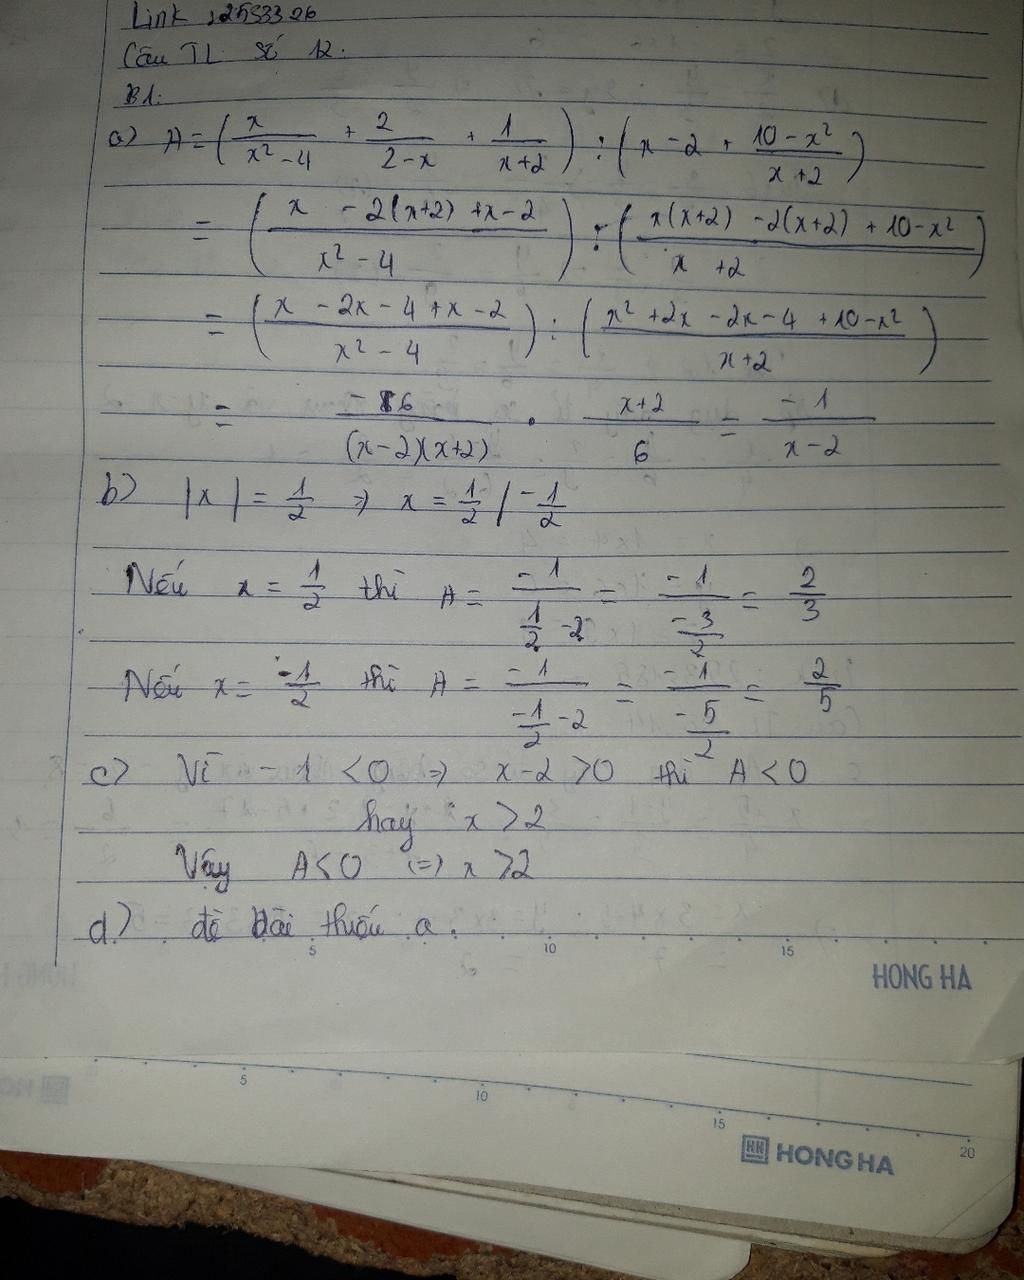 Link : 2533326
Câu TL số 12.
B1.
a) A = (x/(x² - 4) + 2/(2 - x) + 1/(x + 2)) : (x - 2 + (10 - x²)/(x + 2))
= ((x - 2(x+2) + x - 2)/(x² - 4)) : ((x(x+2) - 2(x+2) + 10 - x²)/(x + 2))
= ((x - 2x - 4 + x - 2)/(x² - 4)) : ((x² + 2x - 2x - 4 + 10 - x²)/(x+2))
= -6/((x-2)(x+2)) . (x+2)/6 = -1/(x-2)
b) |x| = 1/2 => x = 1/2 / -1/2
Nếu x = 1/2 thì A = -1/(1/2 - 2) = -1/(-3/2) = 2/3
Nếu x = -1/2 thì A = -1/(-1/2 - 2) = -1/(-5/2) = 2/5
c) Vì -1 < 0 => x - 2 > 0 thì A < 0
hay x > 2
Vậy A < 0 (=) x > 2
d) đề bài thiếu ạ.
5 10 15
HONG HA
5 10 15 20
HH HONG HA